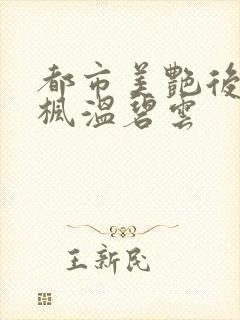 都市美艷後
楓溫碧雲
王新民